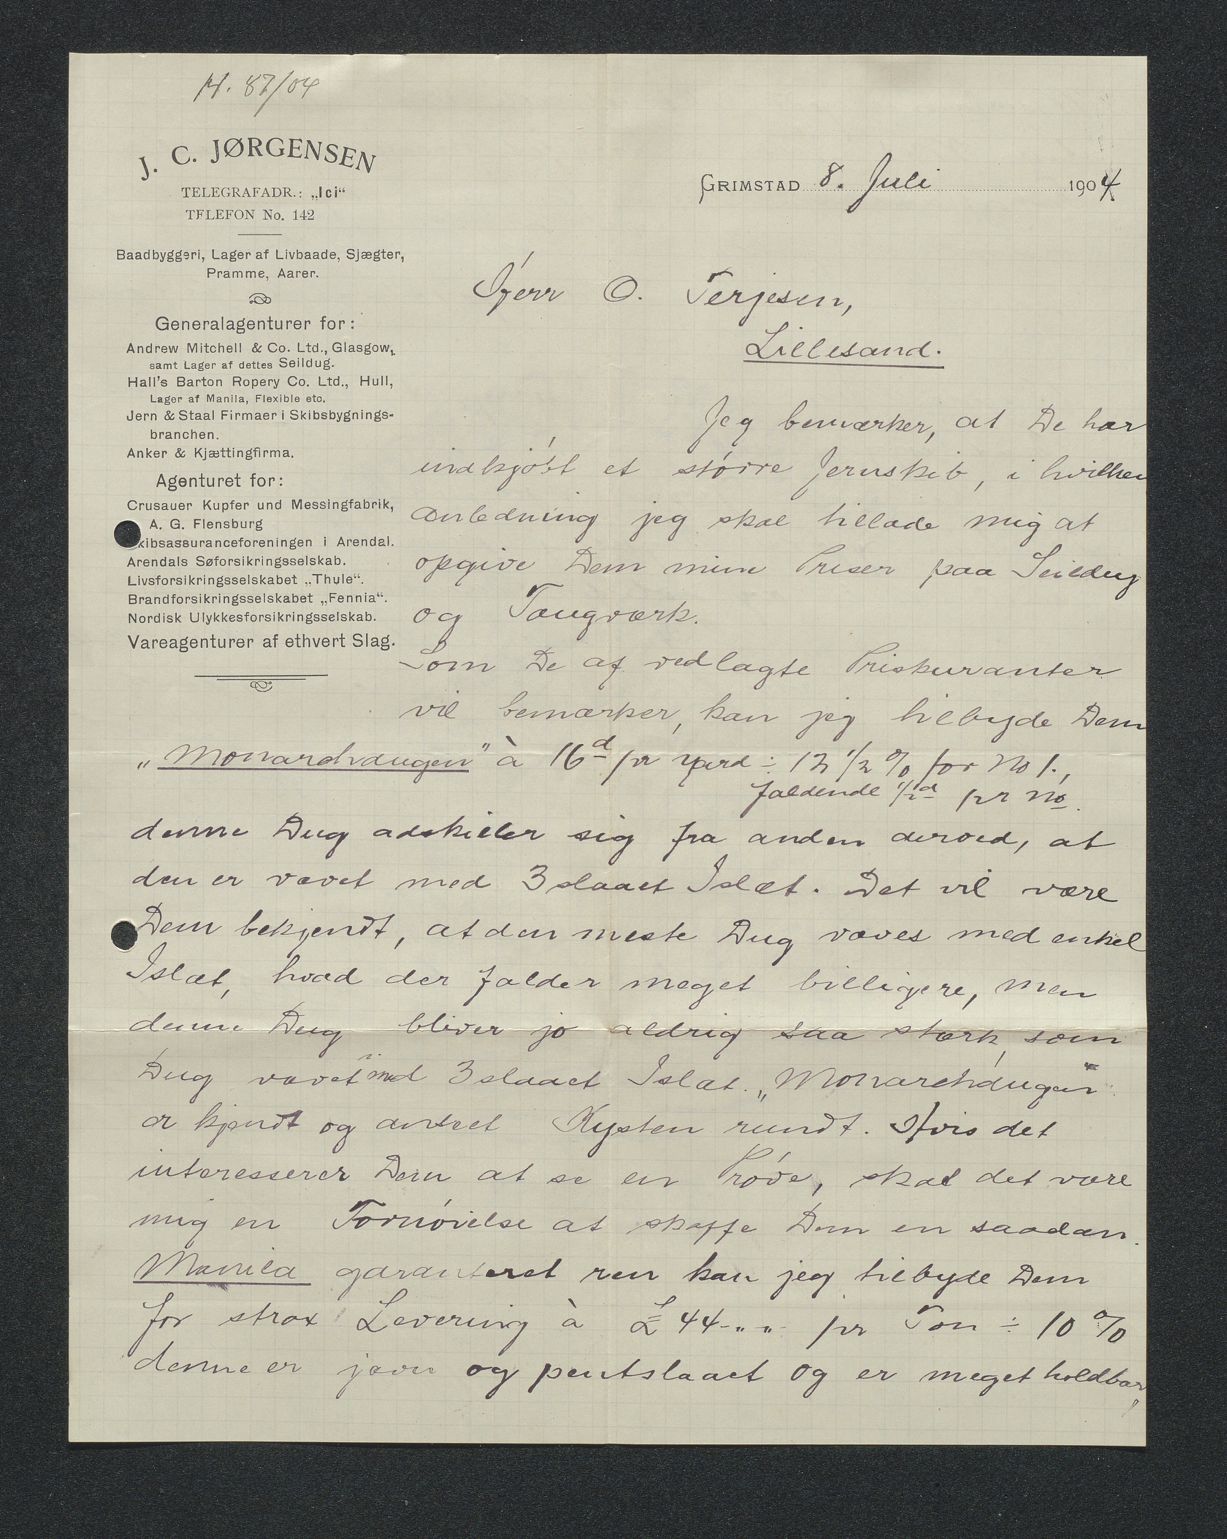 N. 87/04
J. C. JØRGENSEN
TELEGRAFADR.: „Ici“
TELEFON No. 142
Baadbyggeri, Lager af Livbaade, Sjægter,
Pramme, Aarer.
Generalagenturer for:
Andrew Mitchell & Co. Ltd., Glasgow,
samt Lager af dettes Seildug.
Hall's Barton Ropery Co. Ltd., Hull,
Lager af Manila, Flexible etc.
Jern & Staal Firmaer i Skibsbygnings-
branchen.
Anker & Kjættingfirma.
Agenturet for:
Crusauer Kupfer und Messingfabrik,
A. G. Flensburg
kibsassuranceforeningen i Arendal.
Arendals Søforsikringsselskab.
Livsforsikringsselskabet „Thule“.
Brandforsikringsselskabet „Fennia“.
Nordisk Ulykkesforsikringsselskab.
Vareagenturer af ethvert Slag.
GRIMSTAD 8. Juli 1904
Herr O. Terjesen,
Lillesand.
Jeg bemærker, at De har
indkjöbt et större Jernskib, i hvilken
Anledning jeg skal tillade mig at
opgive Dem mine Priser paa Seildug
og Taugværk.
Som De af vedlagte Priskuranter
vil bemærker, kan jeg tilbyde Dem
„Monarchdugen" à 16d pr Yard ÷ 12 1/2 % for No 1.,
faldende 1/2d pr No.
denne Dug adskiller sig fra anden derved, at
den er vævet med 3slaaet Islæt. Det vil være
Dem bekjendt, at den meste Dug væves med enkel
Islæt, hvad der falder meget billigere, men
denne Dug bliver jo aldrig saa stærk, som
Dug vævet med 3slaaet Islæt. „Monarchdugen"
er kjendt og anseet Kysten rundt. Hvis det
interesserer Dem at se en Pröve, skal det være
mig en Fornöielse at skaffe Dem en saadan.
Manila garanteret ren kan jeg tilbyde Dem
for strax Levering à £ 44-"-"- pr Ton ÷ 10 %
denne er jævn og pentslaaet og er meget holdbar,